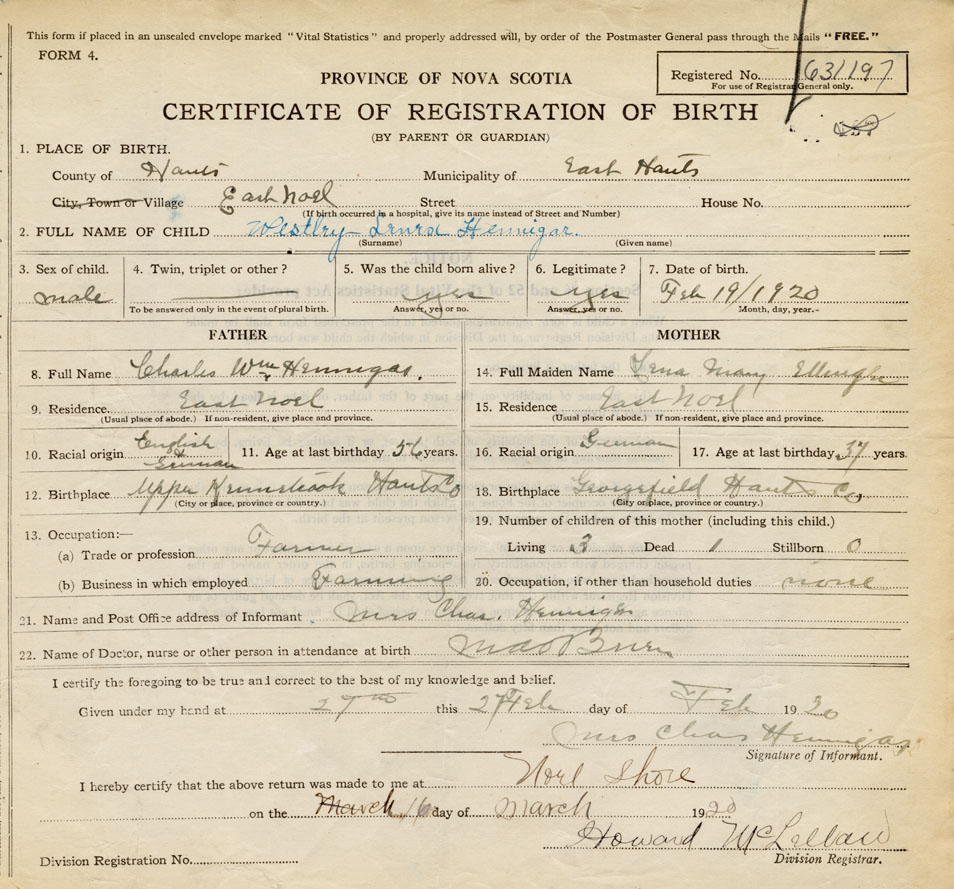 This form if placed in an unsealed envelope marked "Vital Statistics" and properly addressed will, by order of the Postmaster General pass through the Mails "FREE."
FORM 4.
Registered No. 631197
For use of Registrar General only.
PROVINCE OF NOVA SCOTIA
CERTIFICATE OF REGISTRATION OF BIRTH
(BY PARENT OR GUARDIAN)
1. PLACE OF BIRTH.
County of Hants Municipality of East Hants
City, Town or Village East Noel Street House No.
(If birth occurred in a hospital, give its name instead of Street and Number)
2. FULL NAME OF CHILD Westley Hennigar.
(Surname) (Given name)
3. Sex of child. 4. Twin, triplet or other? 5. Was the child born alive? 6. Legitimate? 7. Date of birth.
male yes yes Feb 19/1920
To be answered only in the event of plural birth. Answer, yes or no. Answer, yes or no. Month, day, year.-
FATHER MOTHER
8. Full Name Charles Wm Hennigar. 14. Full Maiden Name Lena Mary
9. Residence. East Noel 15. Residence East Noel
(Usual place of abode.) If non-resident, give place and province. (Usual place of abode.) If non-resident, give place and province.
10. Racial origin English & German 11. Age at last birthday 56 years. 16. Racial origin German 17. Age at last birthday 37 years.
12. Birthplace Upper Hants Co 18. Birthplace Georgefield Hants Co
(City or place, province or country.) (City or place, province or country.)
13. Occupation:— 19. Number of children of this mother (including this child.)
(a) Trade or profession Farmer Living 3 Dead 1 Stillborn 0
(b) Business in which employed Farming 20. Occupation, if other than household duties none
21. Name and Post Office address of Informant Mrs Chas. Hennigar
22. Name of Doctor, nurse or other person in attendance at birth
I certify the foregoing to be true and correct to the best of my knowledge and belief.
Given under my hand at 27th this 27 Feb day of Feb 1920
Mrs Chas Hennigar
Signature of Informant.
I hereby certify that the above return was made to me at Noel Shore
on the March 16 day of March 1920
Howard McLellan
Division Registration No. Division Registrar.